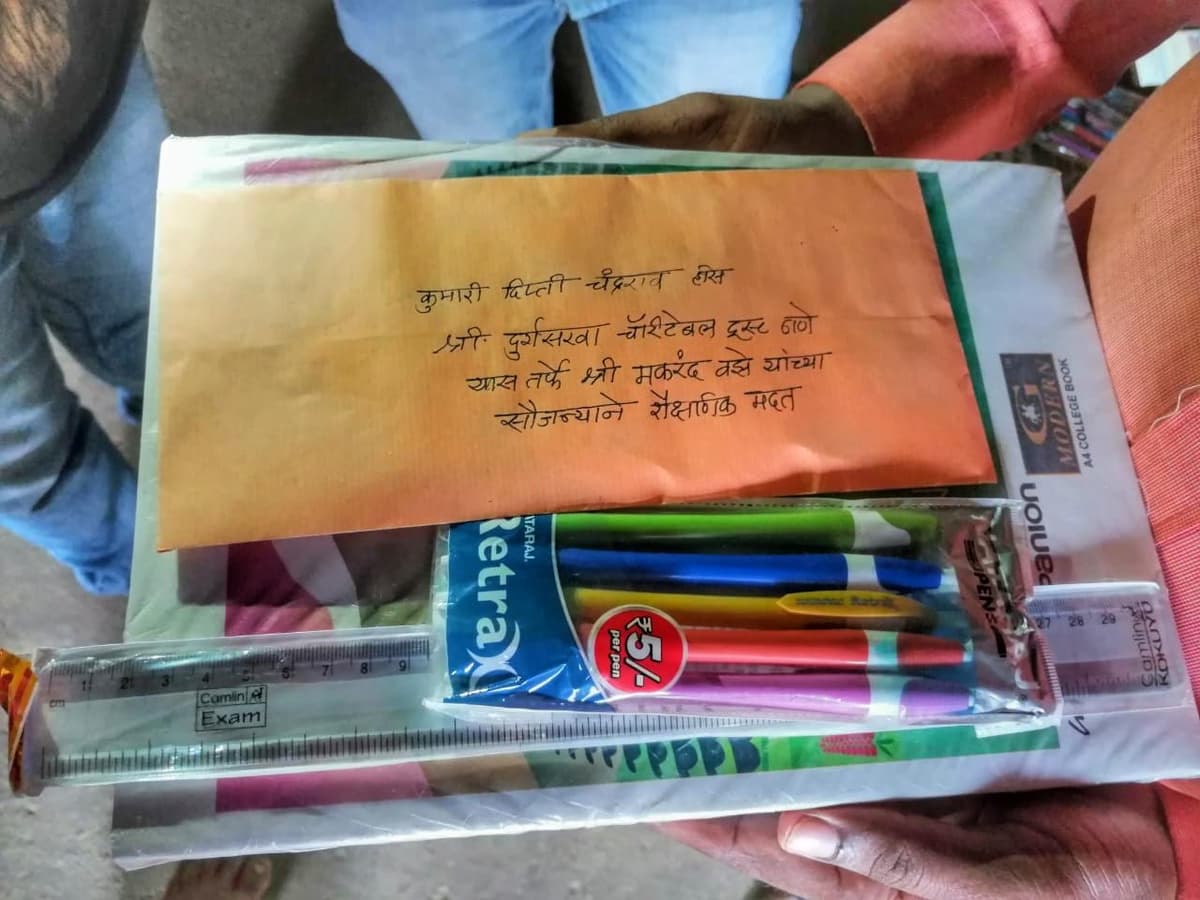 कुमारी दिप्ती चंद्रराव हीस
श्री. दुर्गसखा चॅरिटेबल ट्रस्ट ठाणे
यांस तर्फे श्री मकरंद वझे यांच्या
सौजन्याने शैक्षणिक मदत
G
MODERN
A4 COLLEGE BOOK
panion
NATARAJ
Retrax
₹5/-
per pen
5 PENS
cm 1 2 3 4 5 6 7 8 9
27 28 29
Camlin
Exam
Camlin
KOKUYO